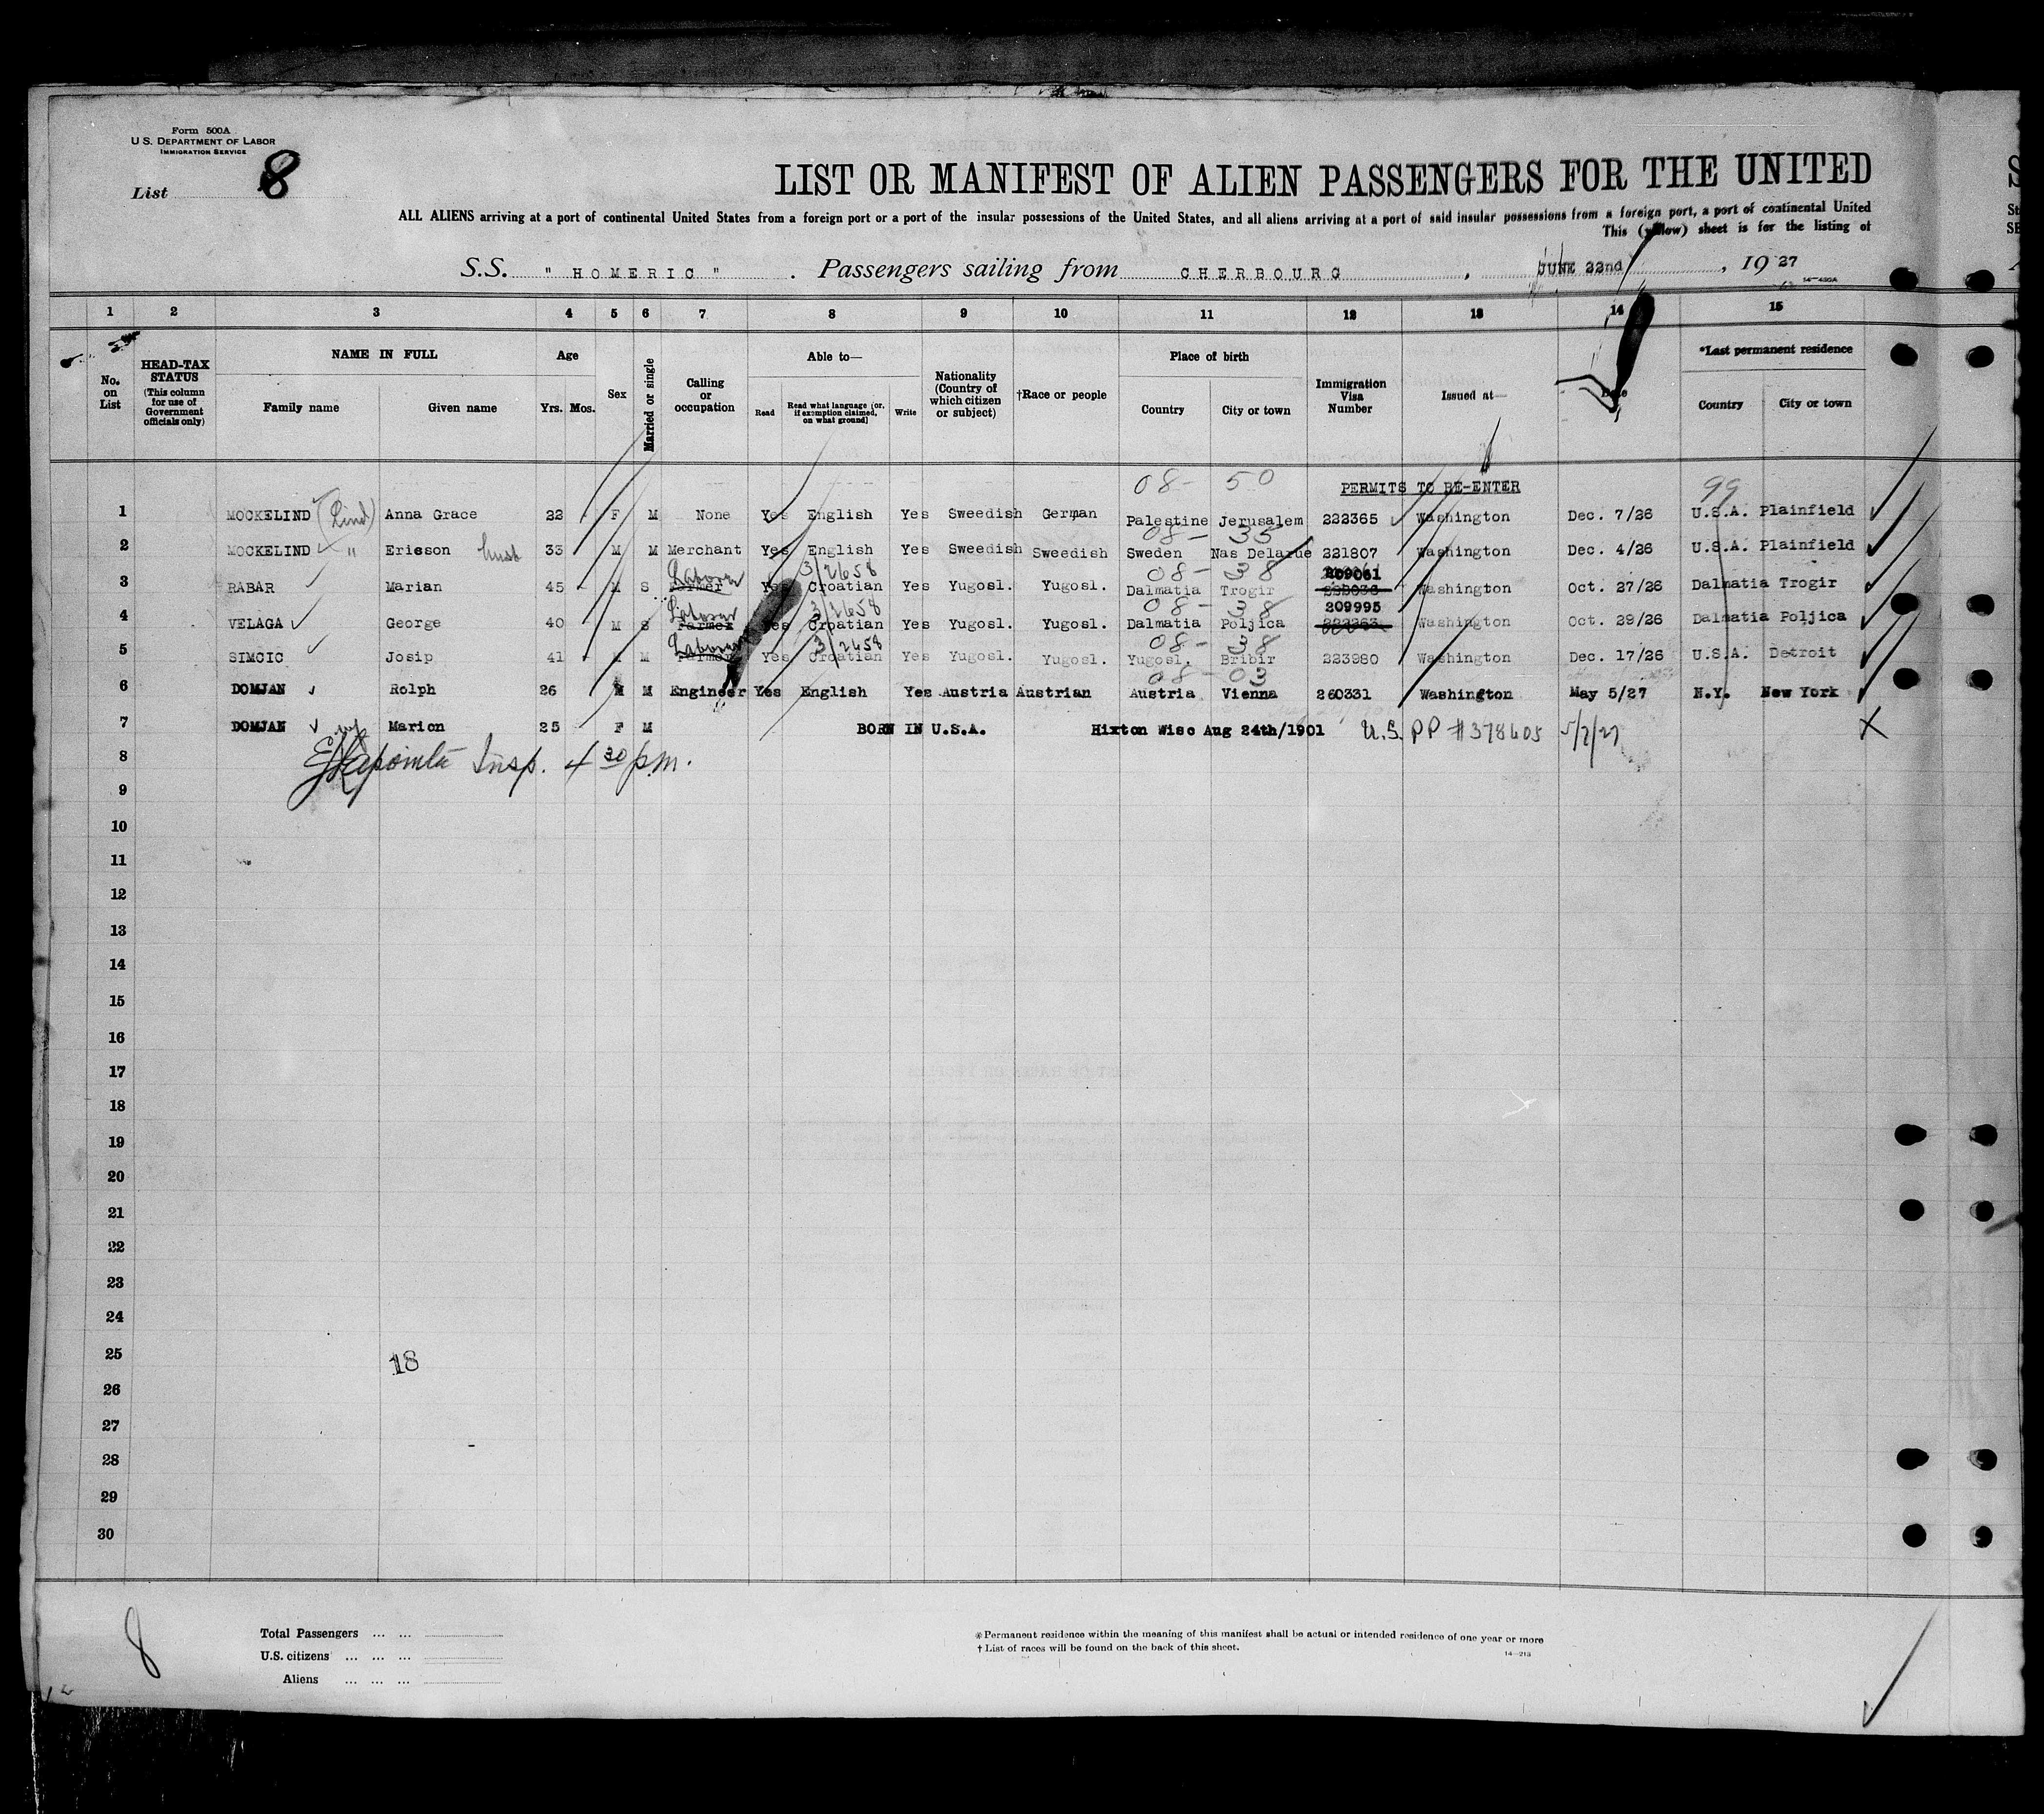 Form 500A
U. S. DEPARTMENT OF LABOR
IMMIGRATION SERVICE
List 8
LIST OR MANIFEST OF ALIEN PASSENGERS FOR THE UNITED
ALL ALIENS arriving at a port of continental United States from a foreign port or a port of the insular possessions of the United States, and all aliens arriving at a port of said insular possessions from a foreign port, a port of continental United
This (yellow) sheet is for the listing of
S.S. " HOMERIC " . Passengers sailing from CHERBOURG , JUNE 22nd , 19 27
14—430A
1 2 3 4 5 6 7 8 9 10 11 12 13 14 15
No. on List
HEAD-TAX STATUS (This column for use of Government officials only)
NAME IN FULL
Family name Given name
Age
Yrs. Mos.
Sex
Married or single
Calling or occupation
Able to—
Read Read what language [or, if exemption claimed, on what ground] Write
Nationality (Country of which citizen or subject)
†Race or people
Place of birth
Country City or town
Immigration Visa Number
Issued at—
Date
*Last permanent residence
Country City or town
08- 50 PERMITS TO RE-ENTER 99
1 MOCKELIND (Lind) Anna Grace 22 F M None Yes English Yes Sweedish German Palestine Jerusalem 222365 Washington Dec. 7/26 U.S.A. Plainfield
08- 35
2 MOCKELIND " Ericson husb 33 M M Merchant Yes English Yes Sweedish Swedish Sweden Nas Delarue 221807 Washington Dec. 4/26 U.S.A. Plainfield
Laborer 3/2658 08- 38 209061
3 RABAR Marian 45 M S Farmer Yes Croatian Yes Yugosl. Yugosl. Dalmatia Trogir Washington Oct. 27/26 Dalmatia Trogir
Laborer 3/2658 08- 38 209995
4 VELAGA George 40 M S Farmer Yes Croatian Yes Yugosl. Yugosl. Dalmatia Poljica 222363 Washington Oct. 29/26 Dalmatia Poljica
Laborer 3/2658 08- 38
5 SIMCIC Josip 41 M M Farmer Yes Croatian Yes Yugosl. Yugosl. Yugosl. Bribir 223980 Washington Dec. 17/26 U.S.A. Detroit
08- 03
6 DOMJAN Rolph 26 M M Engineer Yes English Yes Austria Austrian Austria Vienna 260331 Washington May 5/27 N.Y. New York
7 DOMJAN wf Marion 25 F M BORN IN U.S.A. Hixton Wisc Aug 24th/1901 U.S. PP #378605 5/7/27 X
8 Lapointe Insp. 4 30 p.m.
9
10
11
12
13
14
15
16
17
18
19
20
21
22
23
24
25
18
26
27
28
29
30
8
Total Passengers ... ...
U.S. citizens ... ... ...
Aliens ... ... ...
*Permanent residence within the meaning of this manifest shall be actual or intended residence of one year or more
† List of races will be found on the back of this sheet.
14—213